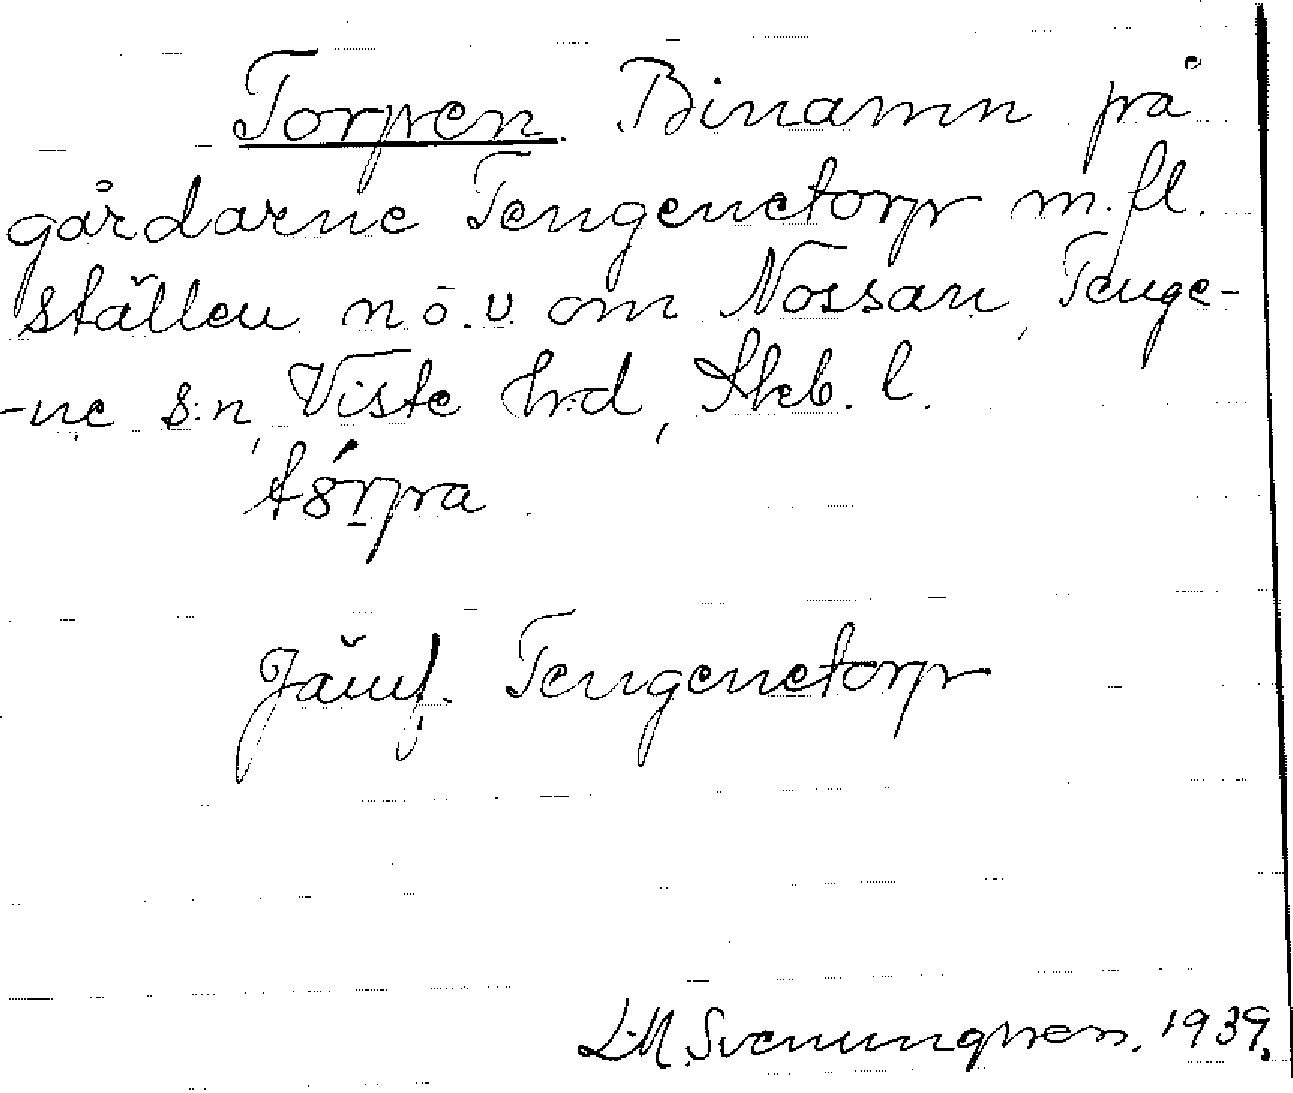 Torpen. Binamn på
gårdarne Tengenetorp m.fl.
ställen n.ö.v. om Nossan, Tenge-
-ne s:n, Viste hrd, Skb. l.
Jämf. Tengenetorp
L.M. Svenungsson. 1939.